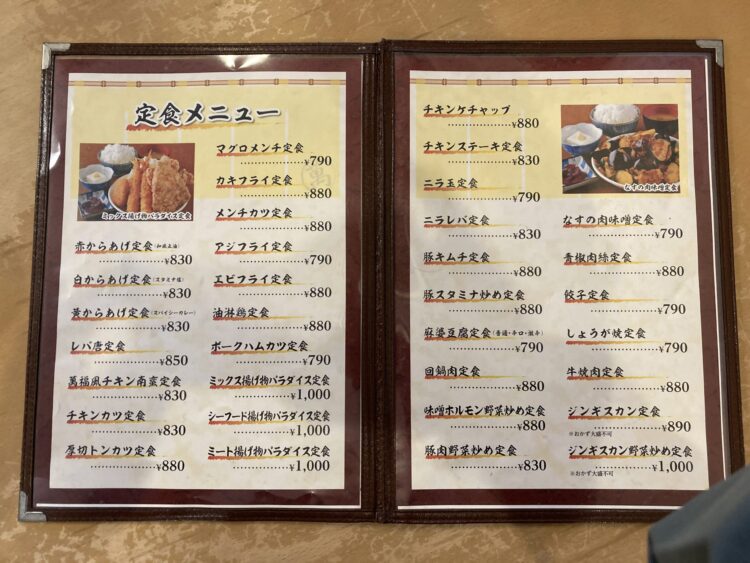 定食メニュー
ミックス揚げ物パラダイス定食
赤からあげ定食(和風正油)
¥830
白からあげ定食(スタミナ塩)
¥830
黄からあげ定食(スパイシーカレー)
¥830
レバ唐定食
¥850
萬福風チキン南蛮定食
¥830
チキンカツ定食
¥830
厚切トンカツ定食
¥880
マグロメンチ定食
¥790
カキフライ定食
¥880
メンチカツ定食
¥880
アジフライ定食
¥790
エビフライ定食
¥880
油淋鶏定食
¥880
ポークハムカツ定食
¥790
ミックス揚げ物パラダイス定食
¥1,000
シーフード揚げ物パラダイス定食
¥1,000
ミート揚げ物パラダイス定食
¥1,000
チキンケチャップ
¥880
チキンステーキ定食
¥830
ニラ玉定食
¥790
ニラレバ定食
¥830
豚キムチ定食
¥880
豚スタミナ炒め定食
¥880
麻婆豆腐定食(普通・辛口・激辛)
¥790
回鍋肉定食
¥880
味噌ホルモン野菜炒め定食
¥880
豚肉野菜炒め定食
¥830
なすの肉味噌定食
なすの肉味噌定食
¥790
青椒肉絲定食
¥880
餃子定食
¥790
しょうが焼定食
¥790
牛焼肉定食
¥880
ジンギスカン定食
¥890
※おかず大盛不可
ジンギスカン野菜炒め定食
¥1,000
※おかず大盛不可